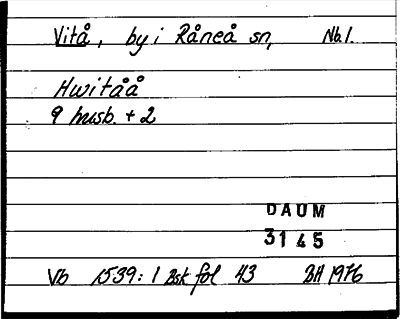 Vitå, by i Råneå sn, Nb.
Hwitåå
9 husb. + 2
DAUM
3145
Vb 1539: 1 Bsk fol 43 BH 1976